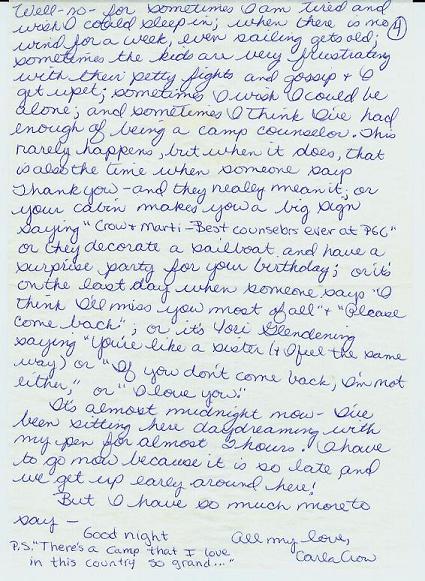 Well-no- for sometimes I am tired and
wish I could sleep in; when there is no
4
wind for a week, even sailing gets old;
sometimes the kids are very frustrating
with their petty fights and gossip & I
get upset; sometimes I wish I could be
alone; and sometimes I think I've had
enough of being a camp counselor. This
rarely happens, but when it does, that
is also the time when someone says
Thank you - and they really mean it; or
your cabin makes you a big sign
saying "Crow & Marti-Best counselors ever at PGC"
or they decorate a sailboat and have a
surprise party for your birthday; or it's
on the last day when someone says "I
think I'll miss you most of all" & "Please
come back"; or it's Tori Glendening
saying "You're like a sister (& I feel the same
way) or "If you don't come back, I'm not
either," or "I love you."
It's almost midnight now - I've
been sitting here daydreaming with
my pen for almost 2 hours. I have
to go now because it is so late and
we get up early around here!
But I have so much more to
say -
Good night
All my love,
Carla Crow
P.S. "There's a Camp that I love
in this country so grand..."